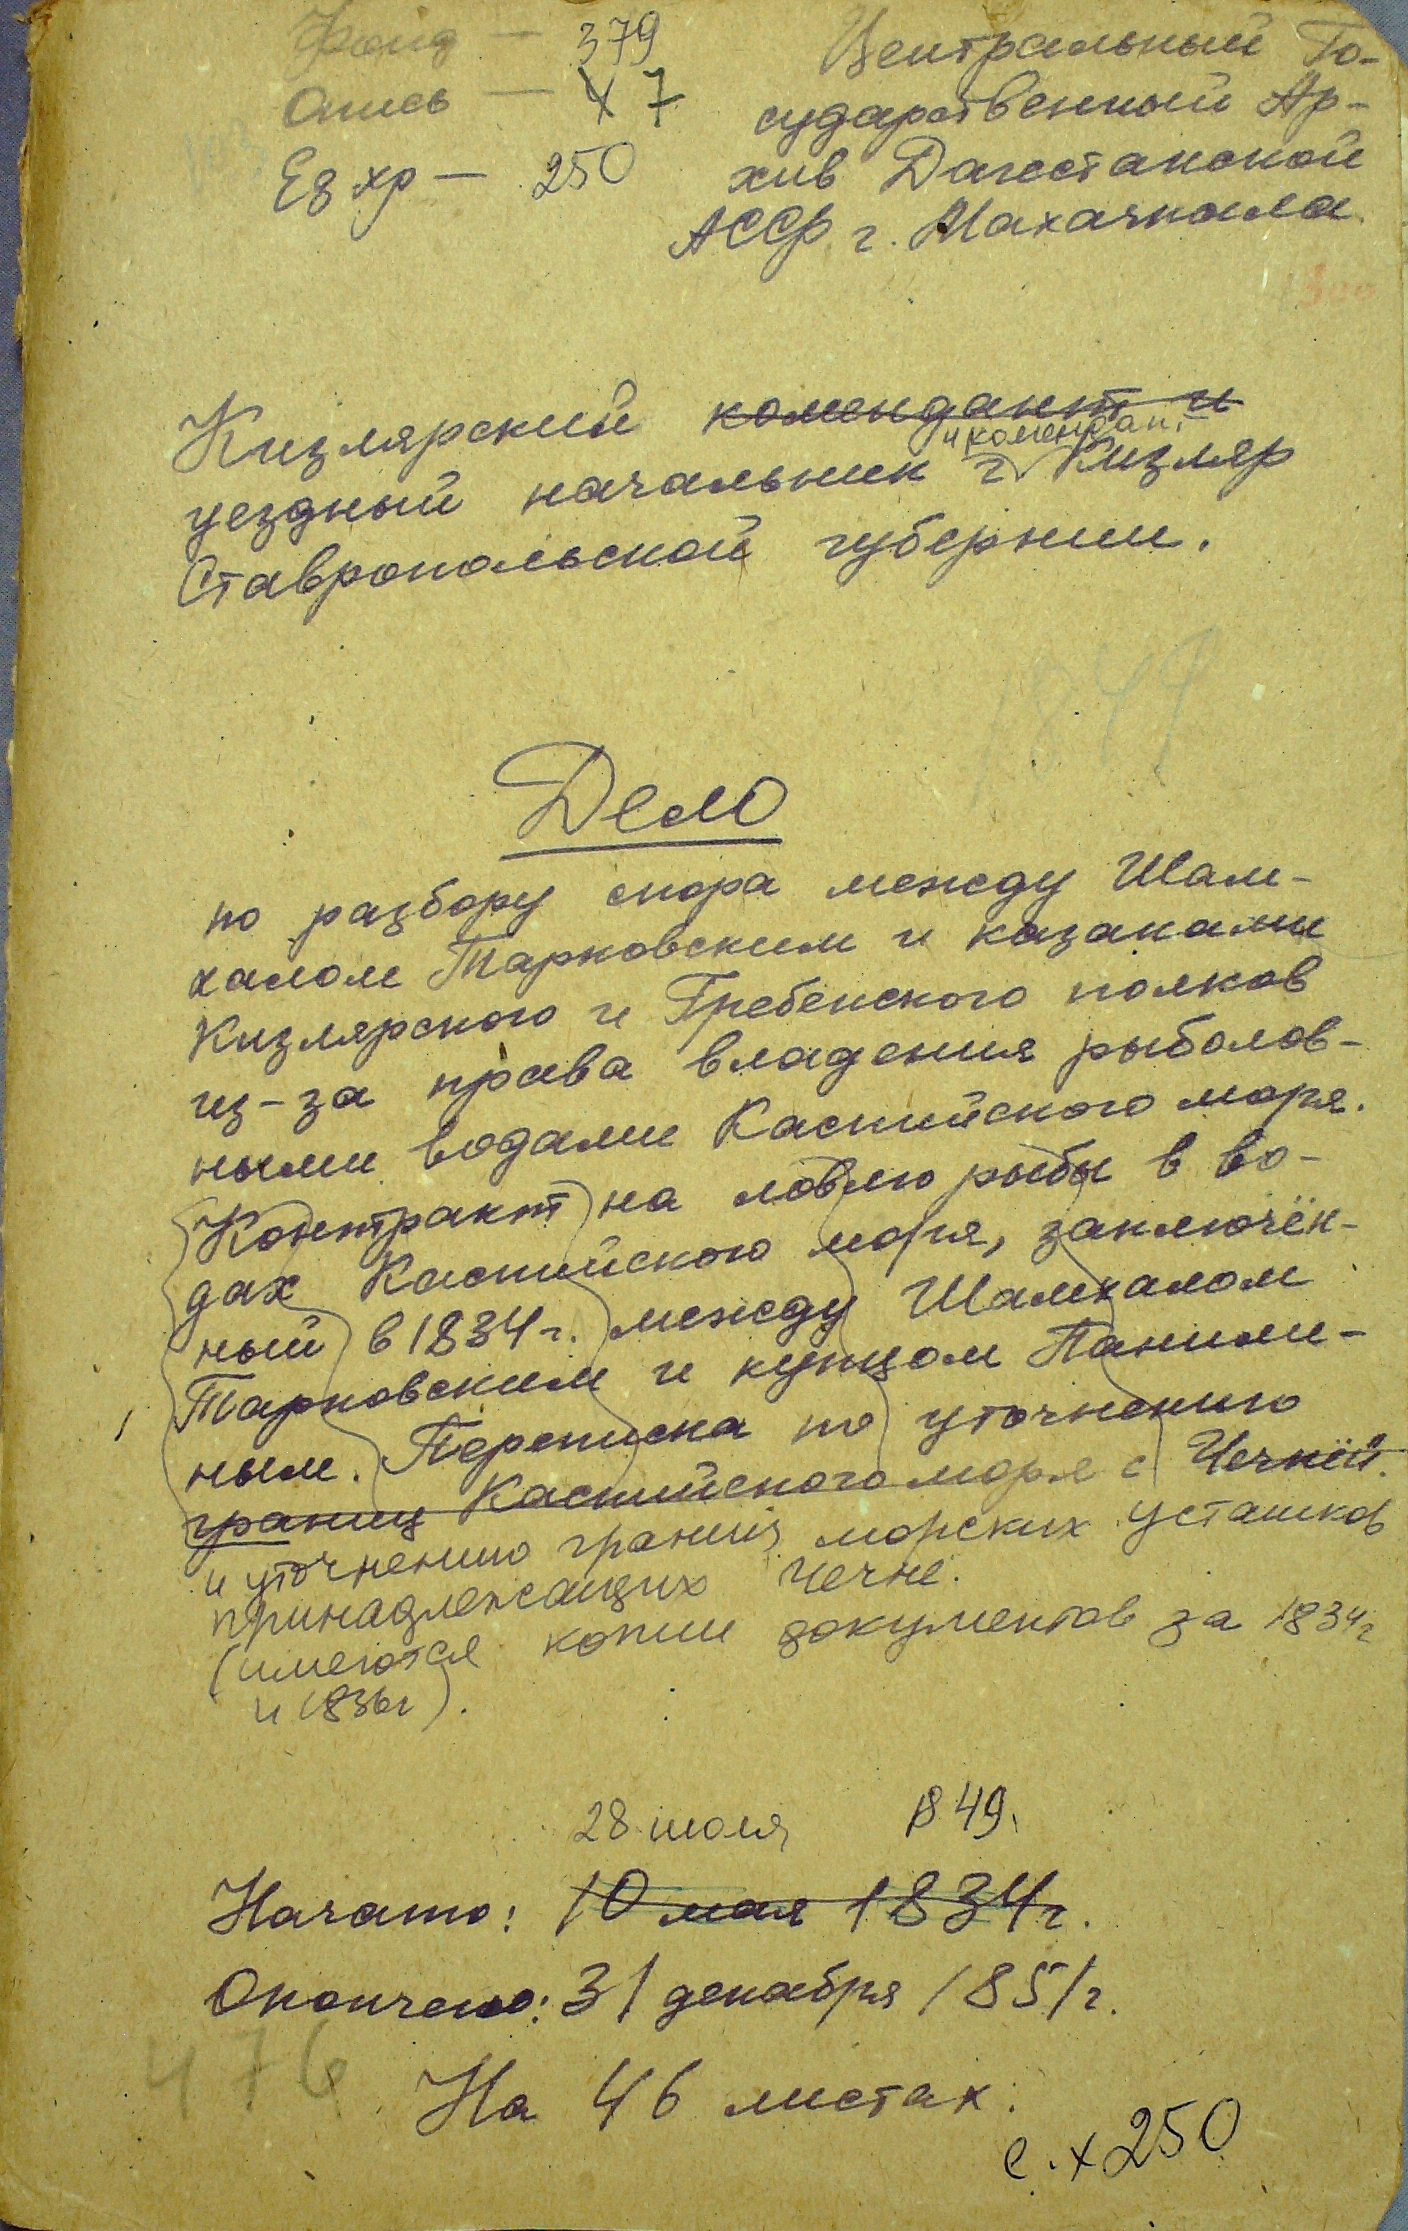 Фонд — 379
Опись — 7
Ед хр — 250
Центральный Го-
сударственный Ар-
хив Дагестанской
АССР г. Махачкала
Кизлярский комендант и
и комендант
уездный начальник г Кизляр
Ставропольской губернии.
1849
Дело
по разбору спора между Шам-
халом Тарковским и казаками
Кизлярского и Гребенского полков
из-за права владения рыболов-
ными водами Каспийского моря.
Контракт на ловлю рыбы в во-
дах Каспийского моря, заключён-
ный в 1834 г. между Шамхалом
Тарковским и купцом Паними-
ным. Переписка по уточнению
границ Каспийского моря с Чечнёй.
и уточнению границ морских усташков
принадлежащих Чечне.
(имеются копии документов за 1834 г
и 1836 г).
28 июля 1849.
Начато: 10 мая 1834 г.
Окончено: 31 декабря 1851 г.
476
На 46 листах.
е. х 250